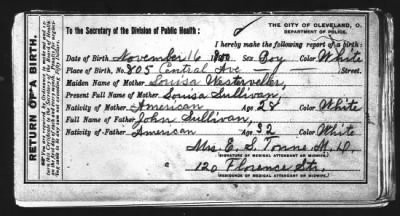 THE CITY OF CLEVELAND, O.
DEPARTMENT OF POLICE.
RETURN OF A BIRTH.
To the Secretary of the Division of Public Health:
I hereby make the following report of a birth:
Date of Birth November 16 Sex Boy Color White
Place of Birth, No. 805 Central Ave Street.
Maiden Name of Mother Louisa Westerveller,
Present Full Name of Mother Louisa Sullivan,
Nativity of Mother American Age 28 Color White
Full Name of Father John Sullivan,
Nativity of Father American Age 32 Color White
Mrs E. S. Tonne M. D.
(SIGNATURE OF MEDICAL ATTENDANT OR MIDWIFE)
120 Florence Str.
(RESIDENCE OF MEDICAL ATTENDANT OR MIDWIFE)